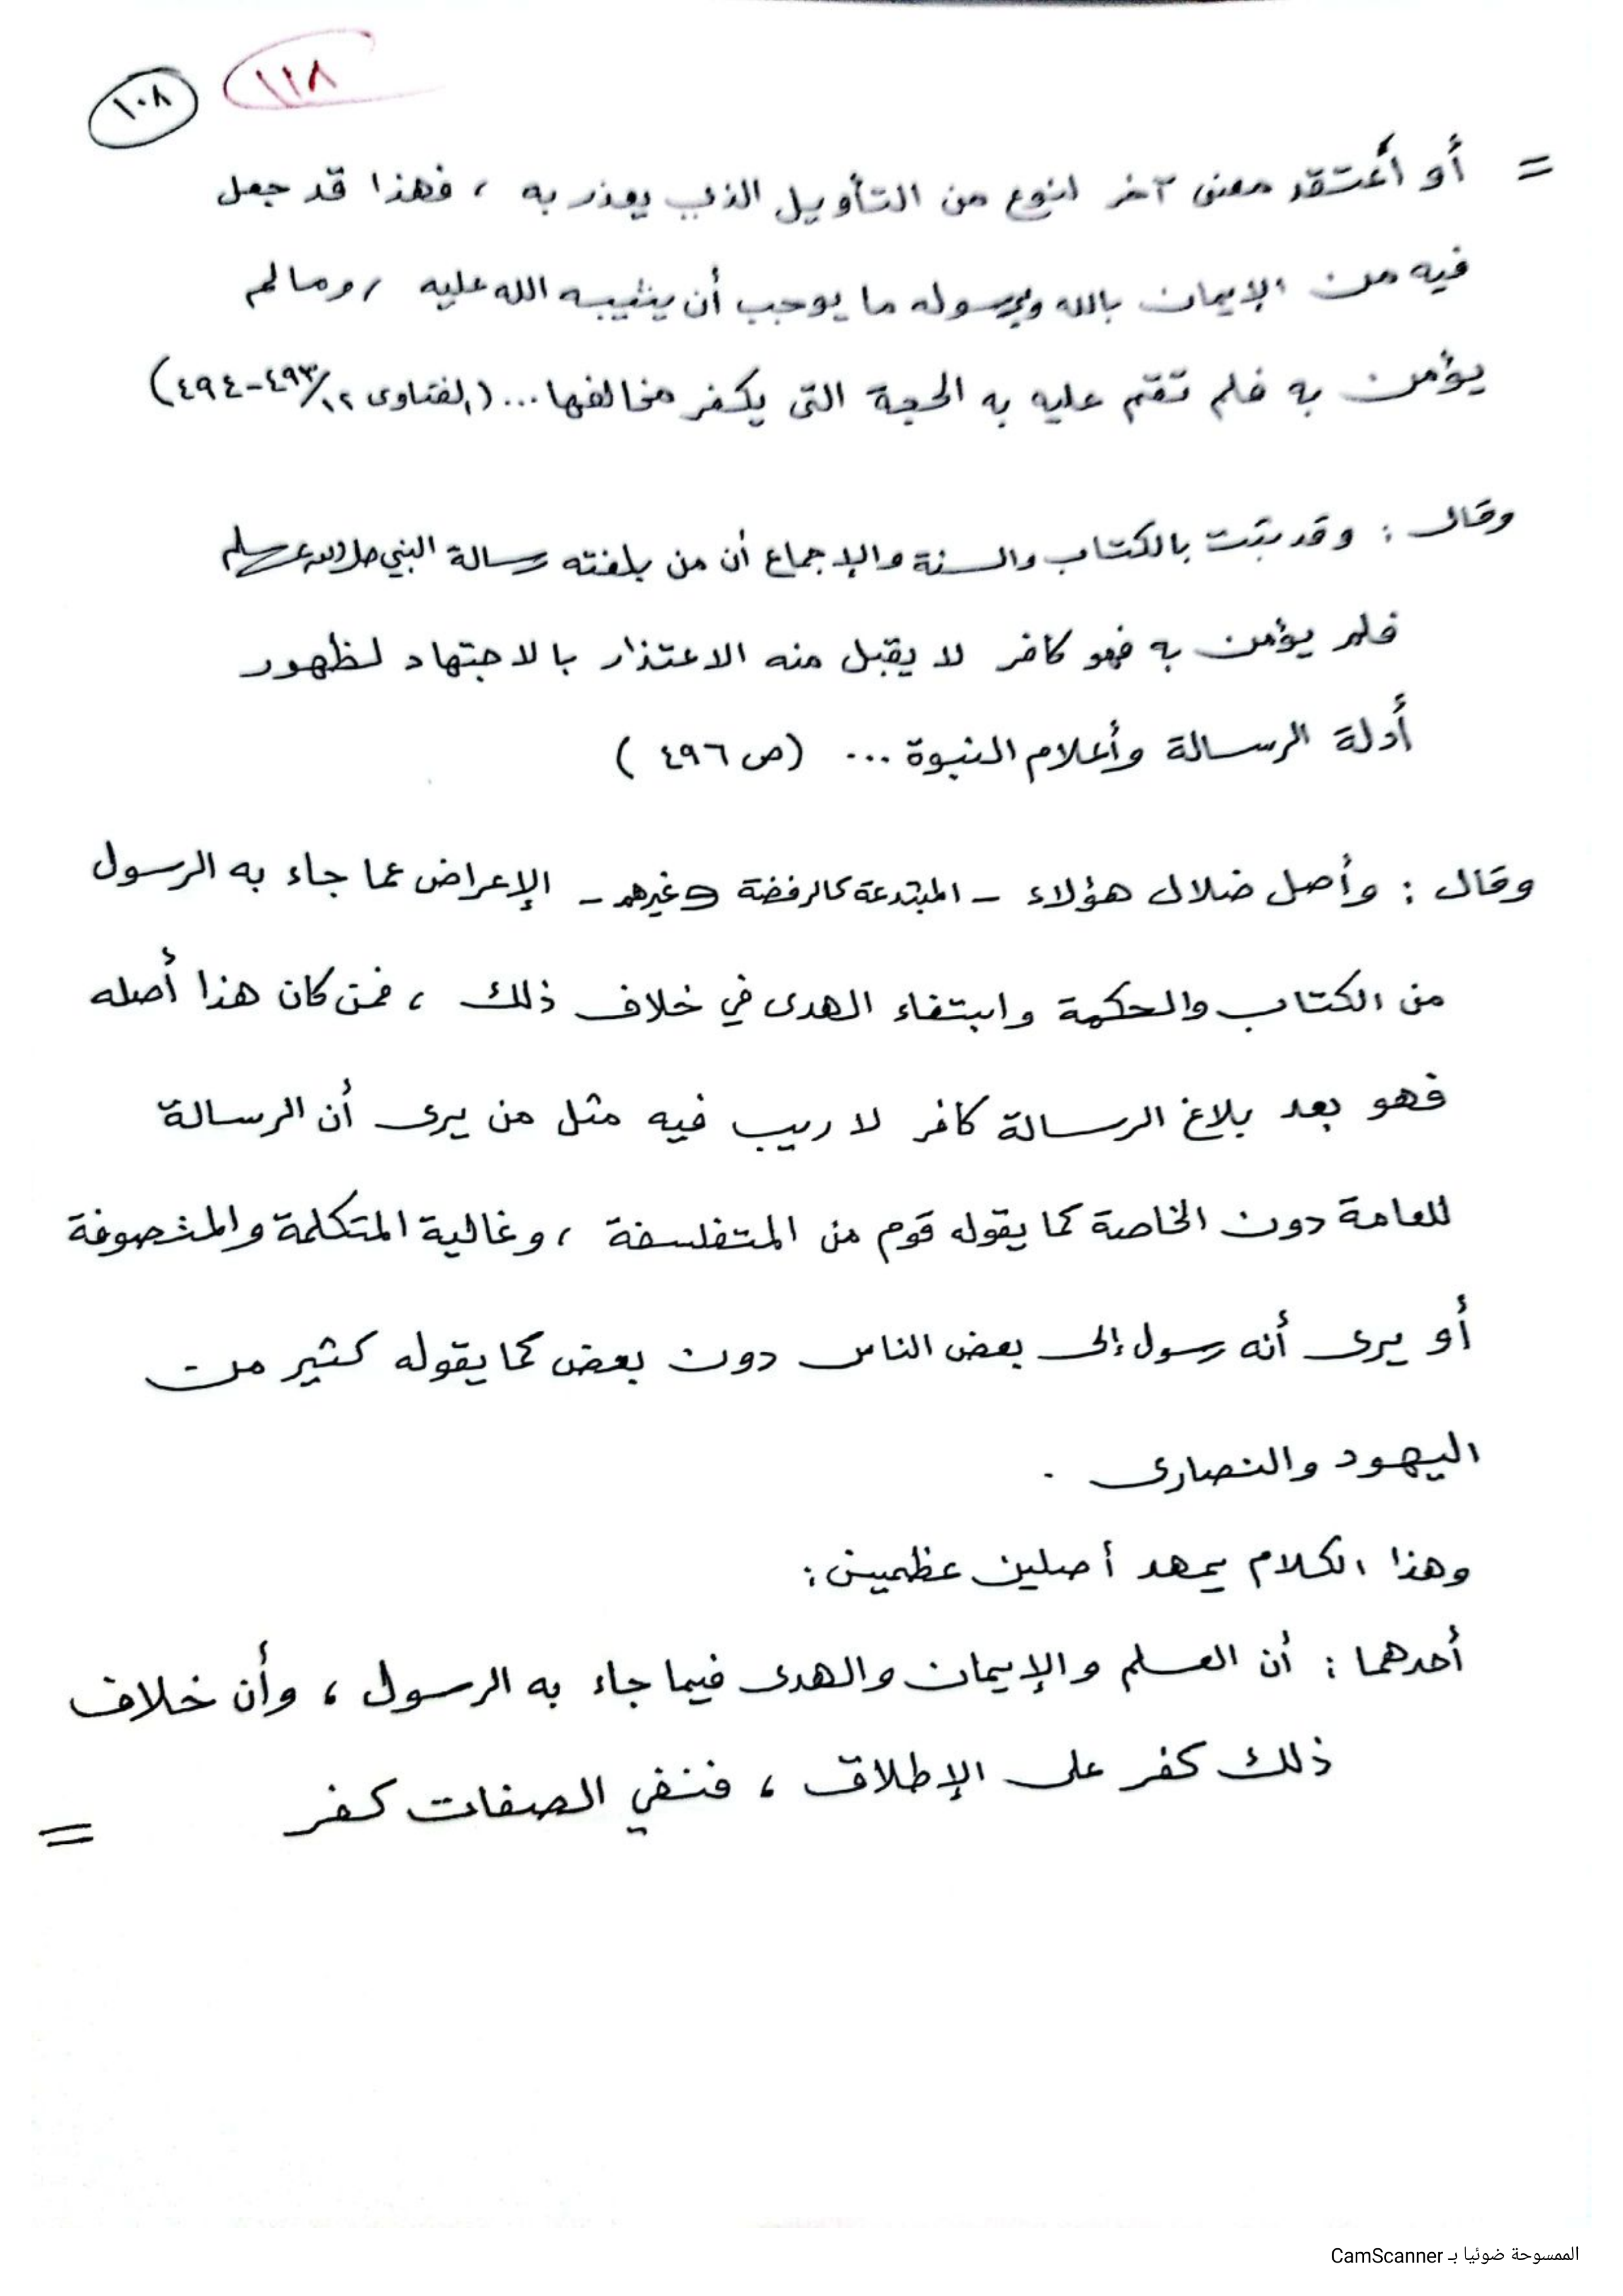 ١١٨
١٠٨
= أو أعتقد معنى آخر لنوع من التأويل الذي يعذر به ، فهذا قد جعل
فيه من الإيمان بالله وبرسوله ما يوجب أن يثيبه الله عليه ، وما لم
يؤمن به فلم تقم عليه به الحجة التي يكفر مخالفها ... (الفتاوى ١٢/ ٤٩٣-٤٩٤)
وقال : وقد ثبت بالكتاب والسنة والإجماع أن من بلغته رسالة النبي صلى الله عليه وسلم
فلم يؤمن به فهو كافر لا يقبل منه الاعتذار بالاجتهاد لظهور
أدلة الرسالة وأعلام النبوة ... (ص ٤٩٦ )
وقال : وأصل ضلال هؤلاء - المبتدعة كالرفضة وغيرهم - الإعراض عما جاء به الرسول
من الكتاب والحكمة وابتغاء الهدى في خلاف ذلك ، فمن كان هذا أصله
فهو بعد بلاغ الرسالة كافر لا ريب فيه مثل من يرى أن الرسالة
للعامة دون الخاصة كما يقوله قوم من المتفلسفة ، وغالية المتكلمة والمتصوفة
أو يرى أنه رسول إلى بعض الناس دون بعض كما يقوله كثير من
اليهود والنصارى .
وهذا الكلام يمهد أصلين عظمين :
أحدهما : أن العلم والإيمان والهدى فيما جاء به الرسول ، وأن خلاف
ذلك كفر على الإطلاق ، فنفي الصفات كفر =
الممسوحة ضوئيا بـ CamScanner